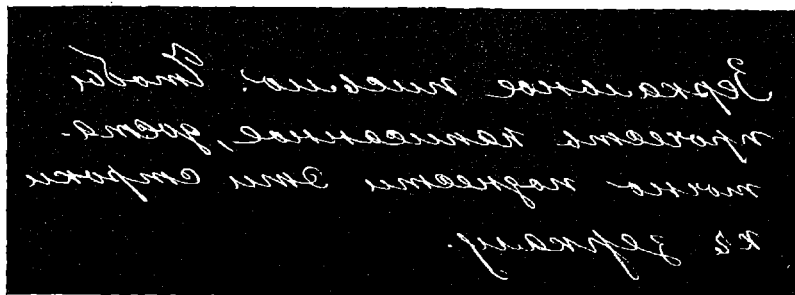 Зеркальное письмо. Чтобы
прочесть написанное, доста-
точно поднести эти строки
къ зеркалу.